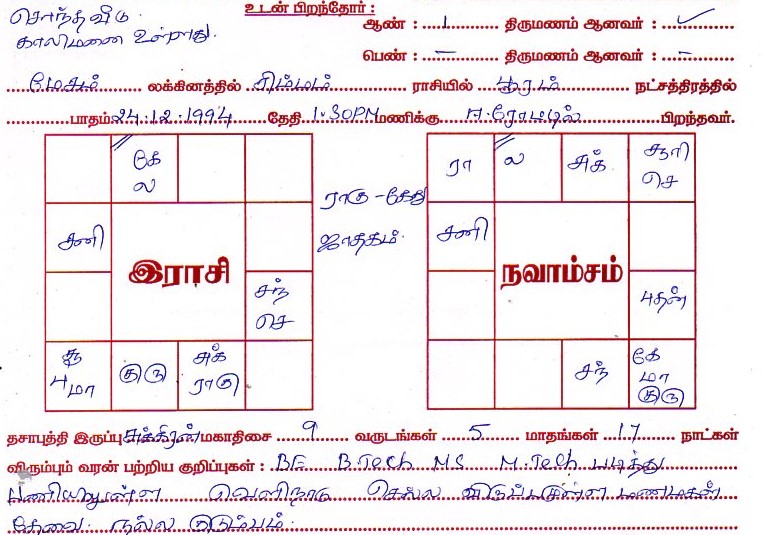 சொந்த வீடு
காலிமணை உள்ளது.
உடன் பிறந்தோர் :
ஆண் : 1 திருமணம் ஆனவர் : ✓
பெண் : – திருமணம் ஆனவர் : –
மேசம் லக்கினத்தில் சிம்மம் ராசியில் பூரம் நட்சத்திரத்தில்
பாதம் 24.12.1994 தேதி 1.30PM மணிக்கு ஈரோட்டில் பிறந்தவர்.
கே
ல
சனி
இராசி
சந்
செ
சூ
பு மா
குரு
சுக்
ராகு
ராகு - கேது
ஜாதகம்.
ரா
ல
சுக்
சூரி
செ
சனி
நவாம்சம்
புதன்
சந்
கே
மா
குரு
தசாபுத்தி இருப்பு சுக்கிரன் மகாதிசை 9 வருடங்கள் 5 மாதங்கள் 17 நாட்கள்
விரும்பும் வரன் பற்றிய குறிப்புகள் : BE B.Tech MS M.Tech படித்து
பணியிலுள்ள வெளிநாடு செல்ல விருப்பமுள்ள மணமகன்
தேவை. நல்ல குடும்பம்.